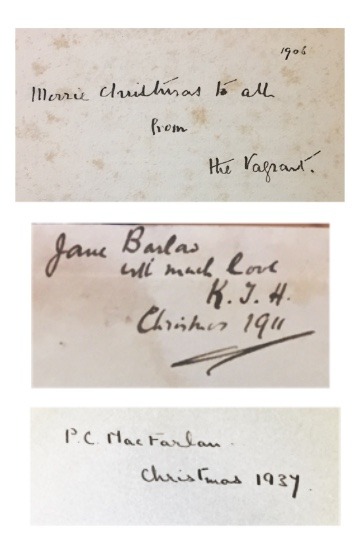 1906
Merrie Christmas to all
from
the Vagrant.
Jane Barlow
with much love
K. T. H.
Christmas 1911
P.C. MacFarlan.
Christmas 1937.